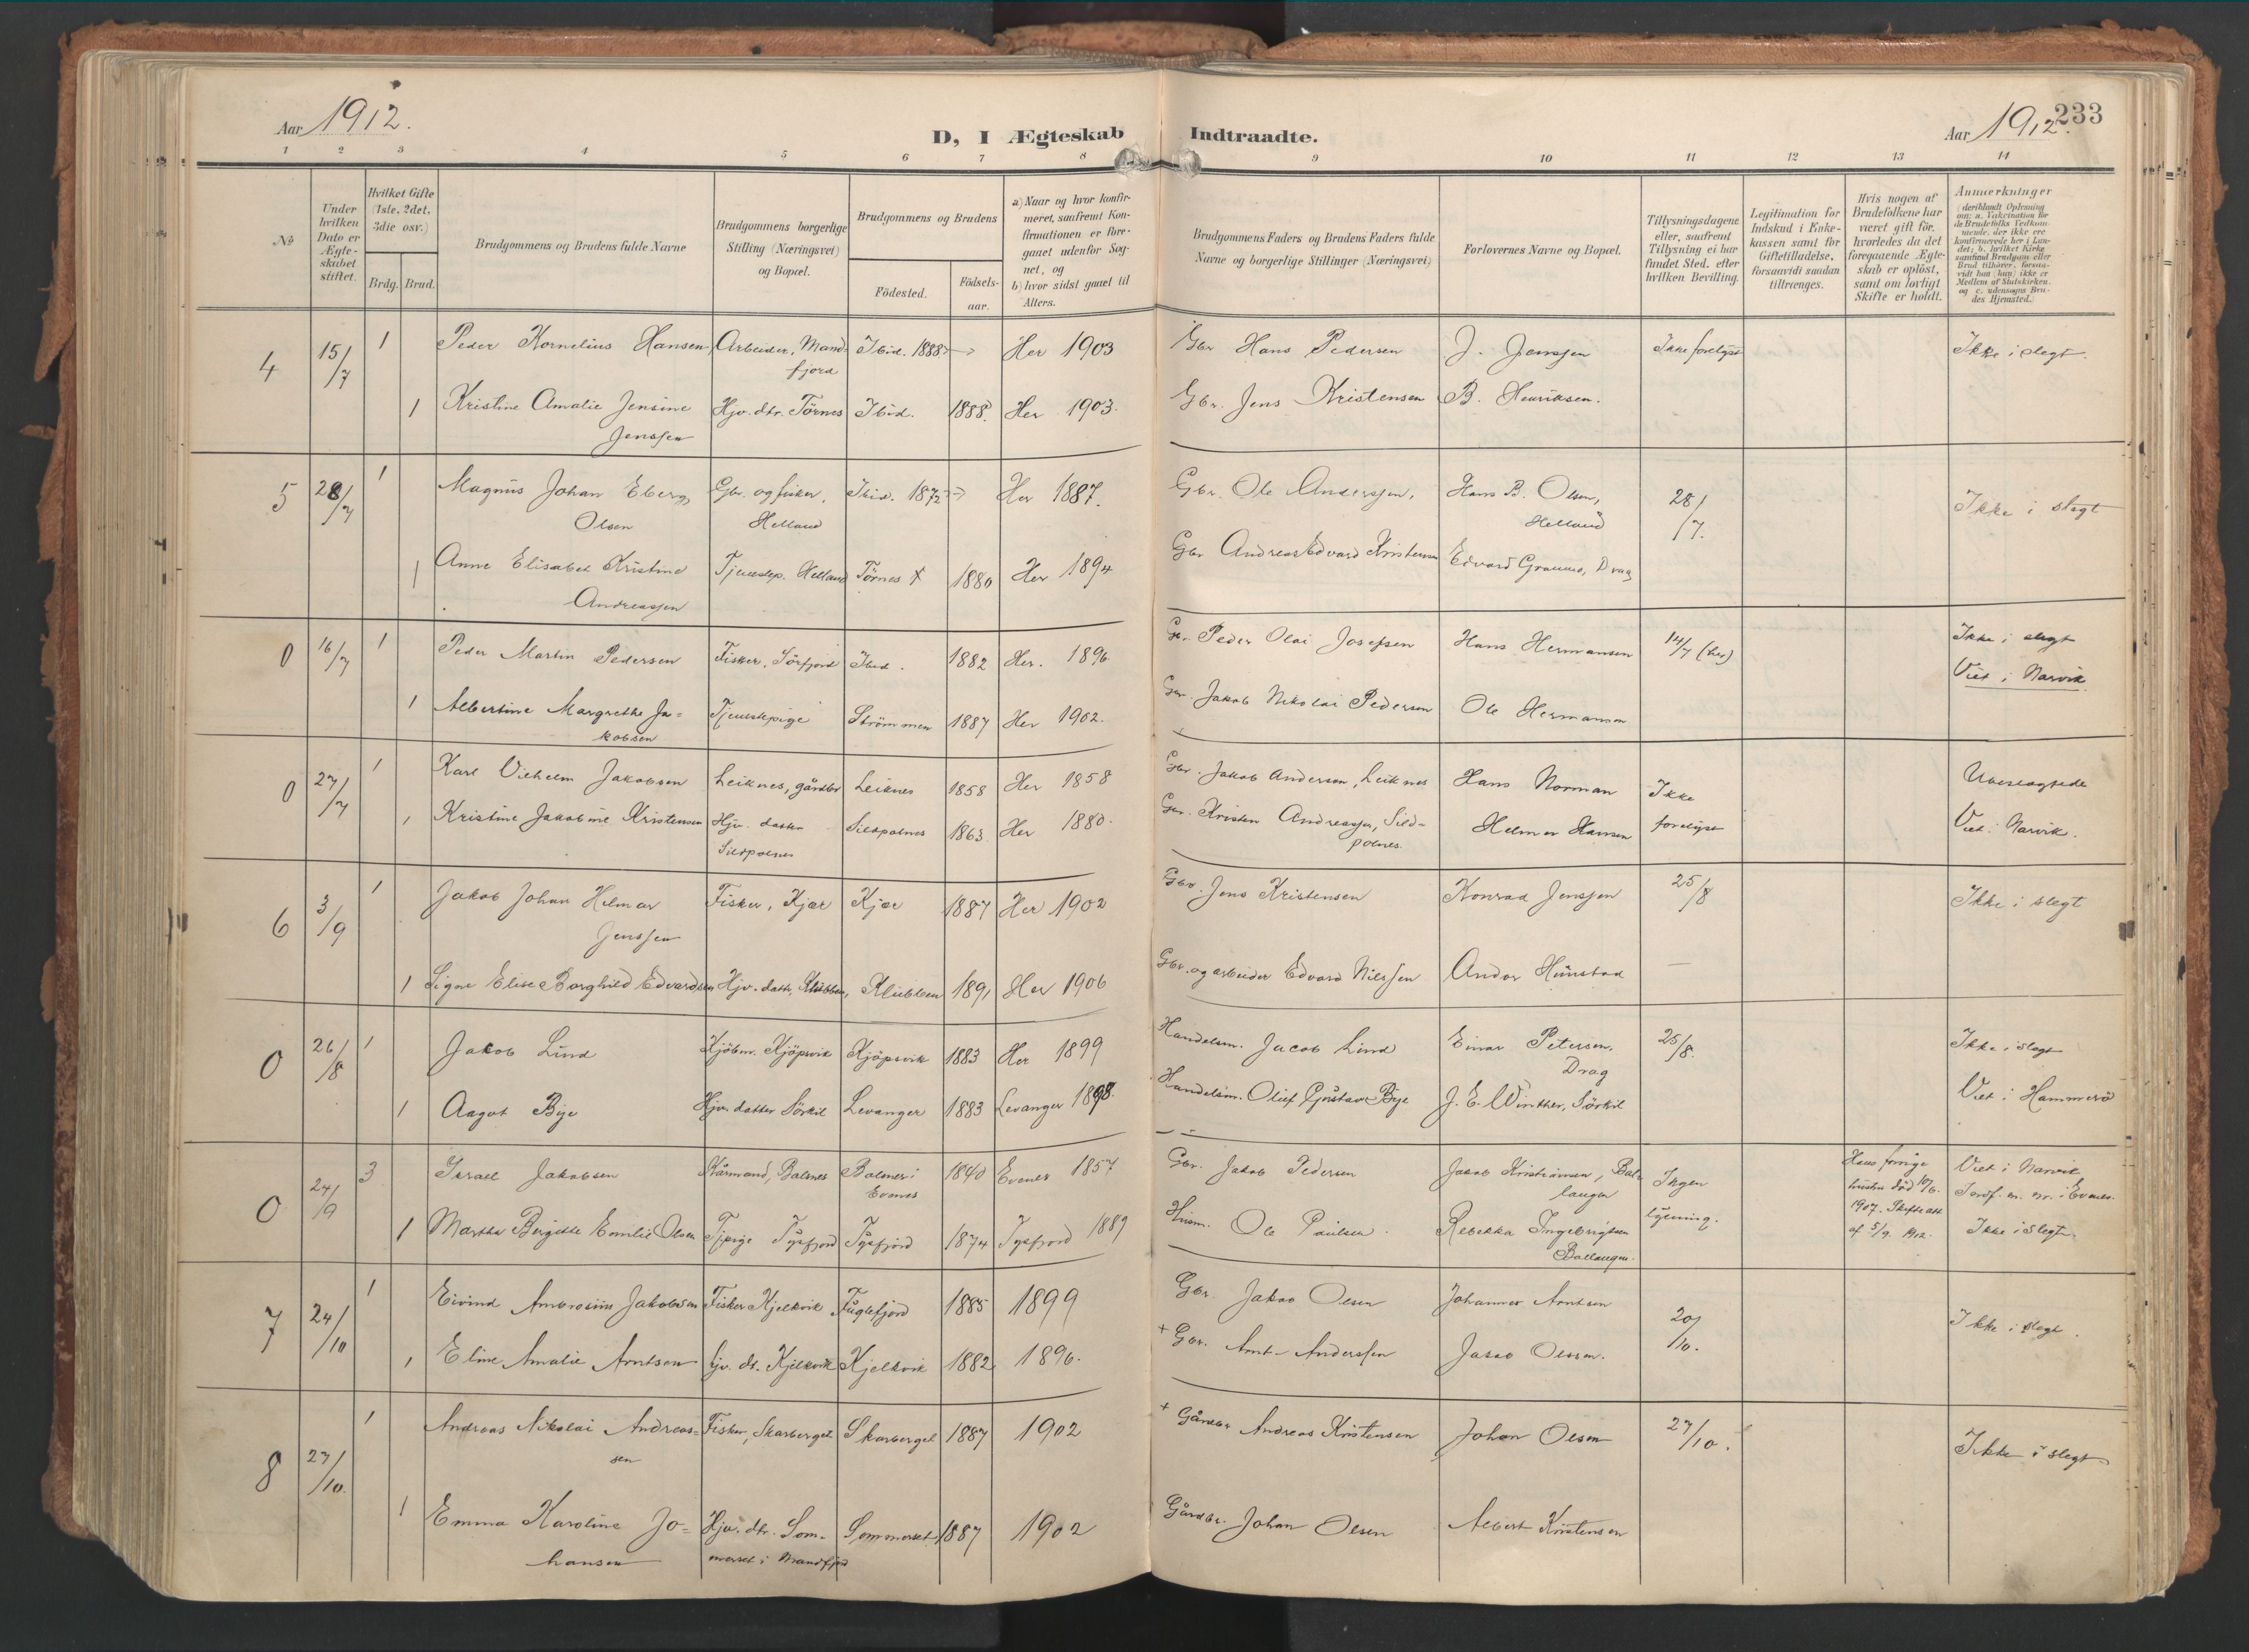 Aar 1912.
D, I Ægteskab Indtraadte.
Aar 1912.
233
1 2 3 4 5 6 7 8 9 10 11 12 13 14
№
Under hvilken Dato er Ægteskabet stiftet.
Hvilket Gifte (1ste, 2det, 3die osv.)
Brdg. Brud.
Brudgommens og Brudens fulde Navne
Brudgommens borgerlige Stilling (Næringsvei) og Bopæl.
Brudgommens og Brudens
Födested.
Födselsaar.
a) Naar og hvor konfirmeret, saafremt Konfirmationen er foregaaet udenfor Sognet, og
b) hvor sidst gaaet til Alters.
Brudgommens Faders og Brudens Faders fulde Navne og borgerlige Stillinger (Næringsvei)
Forlovernes Navne og Bopæl.
Tillysningsdagene eller, saafremt Tillysning ei har fundet Sted, efter hvilken Bevilling.
Legitimation for Indskud i Enkekassen samt for Giftetilladelse, forsaavidt saadan tiltrænges.
Hvis nogen af Brudefolkene har været gift før, hvorledes da det foregaaende Ægteskab er opløst, samt om lovligt Skifte er holdt.
Anmerkninger (deriblandt Oplysning om: a. Vakcination for de Brudefolks Vedkommende, der ikke ere konfirmerede her i Landet; b. hvilket Kirkesamfund Brudgom eller Brud tilhører, forsaavidt han (hun) ikke er Medlem af Statskirken, og c. udensogns Brudes Hjemsted.)
4 15/7 1 Peder Kornelius Hansen, Arbeider, Mandfjord Ibid. 1888 Her 1903 Gbr Hans Pedersen J. Jenssen Ikke forelyst Ikke i slegt.
1 Kristine Amalie Jensine Jenssen Hjv. dtr. Törnes Ibid. 1888. Her 1903. Gbr. Jens Kristensen B. Henriksen.
5 28/7 1 Magnus Johan Eberg Olsen Gbr. og fisker, Helland Ibid. 1872 Her 1887. Gbr. Ole Anderssen, Hans B. Olsen, Helland 28/7. Ikke i slegt
1 Anne Elisabet Kristine Andreassen Tjenestep. Helland Törnes X 1880 Her 1894 Gbr Andreas Edvard Kristensen Edvard Gramme, Drag
0 16/7 1 Peder Martin Pedersen Fisker, Sörfjord Ibid. 1882 Her. 1896. Gbr. Peder Olai Josefsen Hans Hermansen 14/7 (her) Ikke i slegt
Viet i Narvik
1 Albertine Margrethe Jakobsen Tjenestepige Strömmen 1887 Her 1902. Gbr. Jakob Nikolai Pedersen Ole Hermansen
0 27/7 1 Karl Vilhelm Jakobsen Leiknes, gårdbr Leiknes 1858 Her 1858 Gbr. Jakob Andersen, Leiknes Hans Norman Ikke forelyst Ubeslegtede
1 Kristine Jakobine Kristensen Hjv. datter Sildpolnes Sildpolnes 1863 Her 1880. Gbr. Kristen Andreassen, Sildpolnes. Helmer Hansen Viet i Narvik.
6 3/9 1 Jakob Johan Helmar Jenssen Fisker, Kjær Kjær 1887 Her 1902 Gbr. Jens Kristensen Konrad Jenssen 25/8 Ikke i slegt
1 Signe Elise Borghild Edvardsen Hjv. dattr, Klubben, Klubben 1891 Her 1906 Gbr. og arbeider Edvard Nilssen Andor Hunstad —
0 26/8 1 Jakob Lind Kjöbm. Kjöpsvik Kjöpsvik 1883 Her 1899 Handelsm. Jacob Lind Einar Petersen, Drag 25/8. Ikke i slegt
1 Aagot Bye Hjv. datter Sörkil Levanger 1883 Levanger 1898. Handelsm. Oluf Gustav Bye J. E. Winther, Sörkil Viet i Hammerö
0 24/9 3 Israel Jakobsen Kårmand, Balsnes Balsnes i Evenes 1840 Evenes 1857 Gbr. Jakob Pedersen Jakob Kristiansen, Ballangen Ingen lysning. Hans forrige hustru död 10/6. 1907. Skifteatt af 5/9. 1912. Viet i Narvik
Ikke i slegt.
1 Martha Bergitte Emilie Olsen Tj.pige Tysfjord Tysfjord 1874 Tysfjord 1889 Husm. Ole Paulsen. Rebekka Ingebrigtsen Ballangen.
7 24/10 1 Eivind Ambrosius Jakobsen Fisker Kjelkvik Fuglefjord 1885 1899 Gbr. Jakob Olsen Johannes Arntsen 20/10. Ikke i slegt.
1 Eline Amalie Arntsen hjv. dt. Kjelkvik Kjelkvik 1882 1896. + Gbr. Arnt Anderssen Jakob Olssen.
8 27/10. 1 Andreas Nikolai Andreassen Fisker, Skarberget Skarberget 1887 1902 + Gårdbr Andreas Kristensen Johan Olsen 27/10. Ikke i slegt
1 Emma Karoline Johansen Hjv. dtr. Sommerset i Mandfjord Sommerset 1887 1902 Gårdbr. Johan Olsen Albert Kristensen